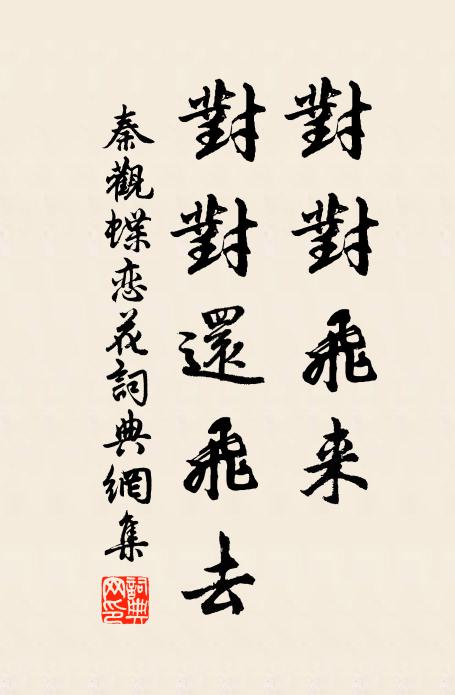 對對飛来
對對還飛去
秦觀蝶恋花詞典網集
詞典网印